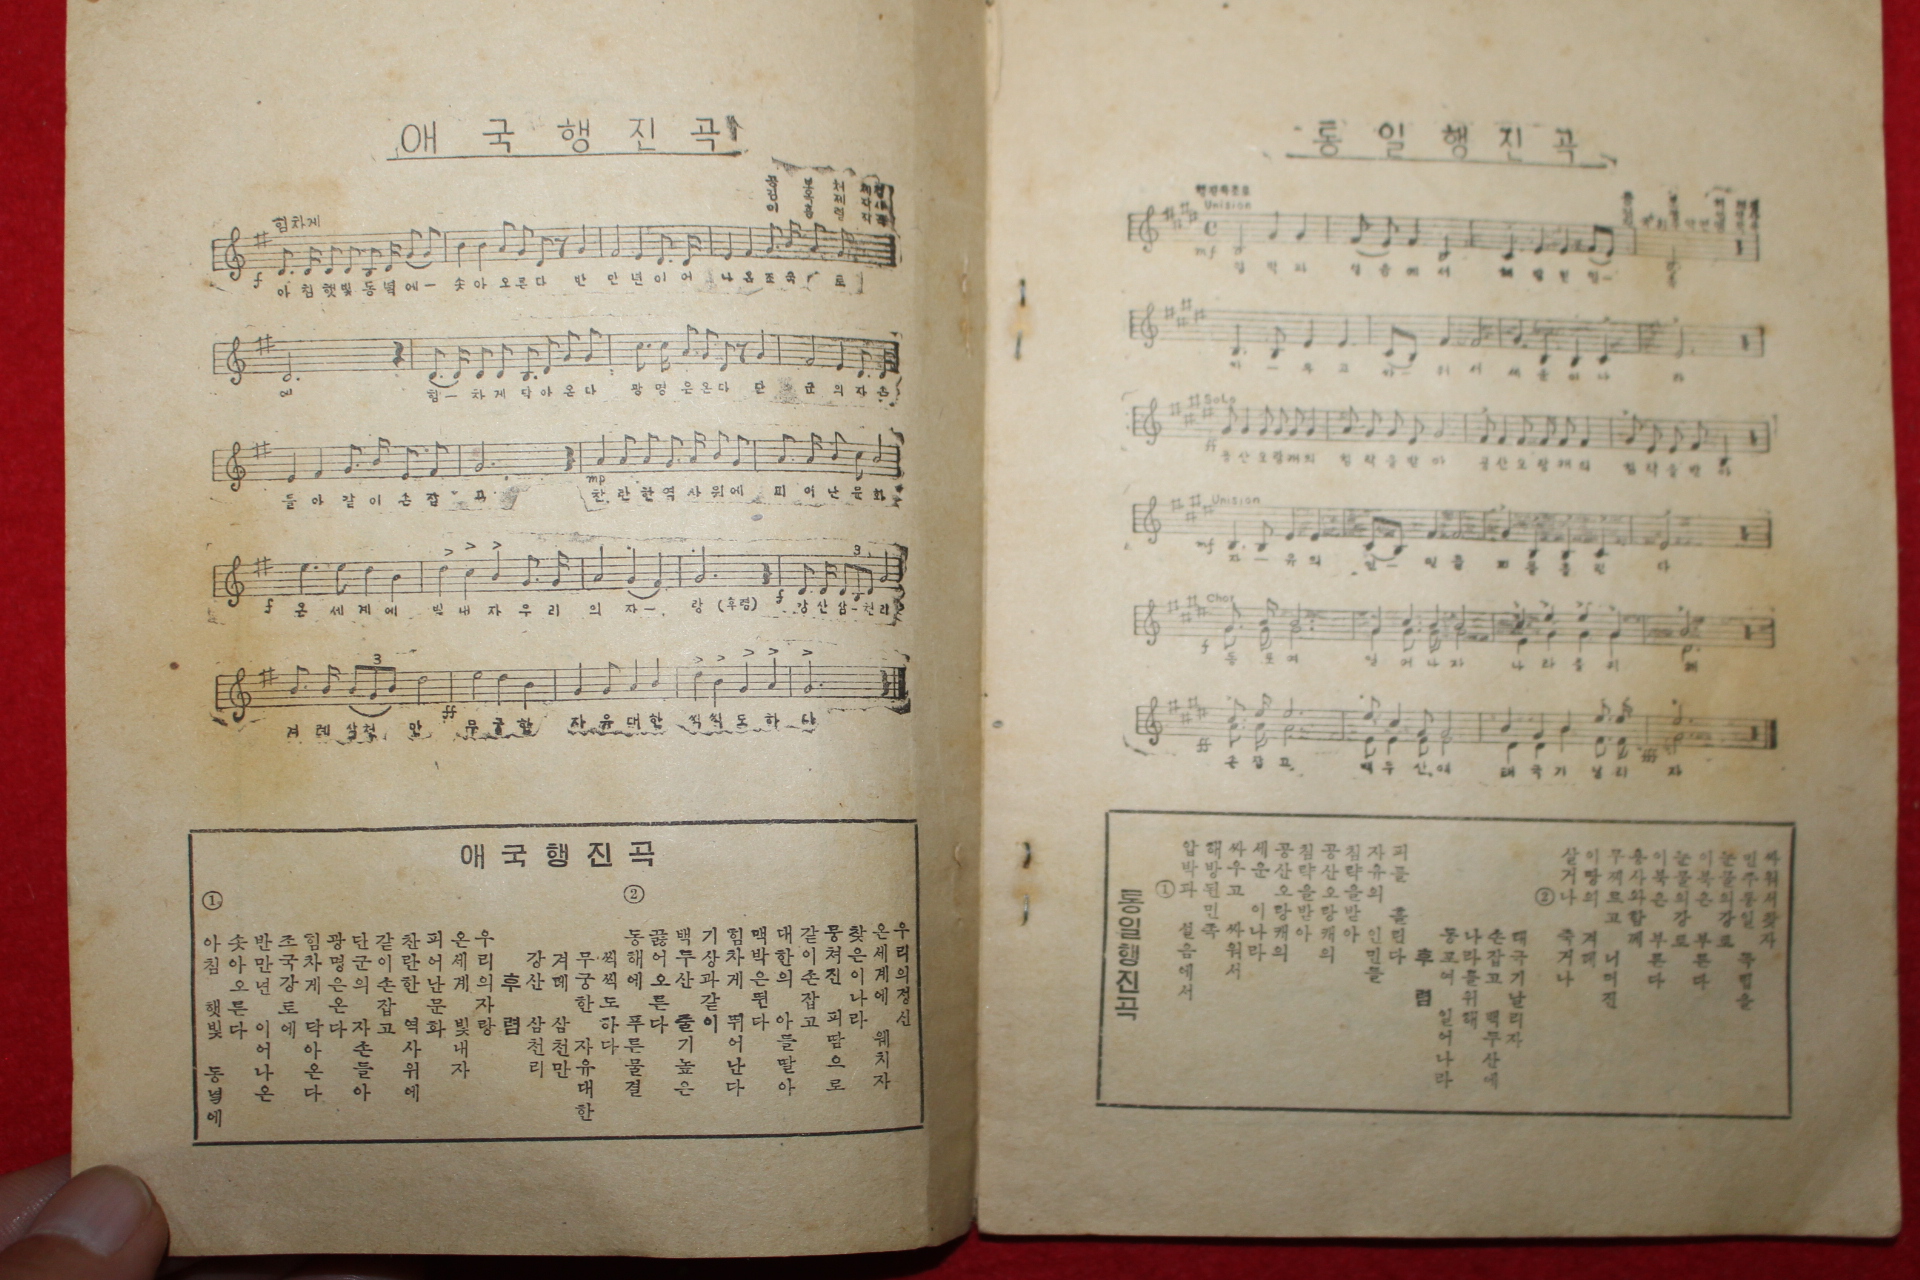 애국행진곡
힘차게
아침햇빛동녘에— 솟아오른다 반만년이어나온조국 토
에 힘—차게닥아온다 광명은온다 단군의자손
들아같이손잡고 찬란한역사위에 피어난문화
mp
온세계에 빛내자우리의자—랑 (후렴) 강산삼—천리
f
겨레삼천만 무궁한 자유대한 씩씩도하다
ff
애국행진곡
①
아침 햇빛 동녘에
솟아오른다
반만년 이어나온
조국강토에
힘차게 닥아온다
광명은온다
단군의 자손들아
같이손잡고
찬란한 역사위에
피어난문화
온세계 빛내자
우리의자랑
후렴
강산 삼천리
겨레 삼천만
무궁한 자유대한
씩씩도하다
②
동해에 푸른물결
끓어오른다
백두산 줄기높은
기상과같이
힘차게 뛰어난다
맥박은뛴다
대한의 아들딸아
같이손잡고
뭉쳐진 피땀으로
찾은이나라
온세계에 웨치자
우리의정신
통일행진곡
Unision
mf
압박과 설음에서 해방된민—족
싸—우고 싸—워서 세운이나라
SoLo
ff
공산오랑캐의 침략을받아 공산오랑캐의 침략을받아
Unision
mf
자—유의 인—민들 피를흘린다
Chor
f
동포여 일어나자 나라를위해
ff
손잡고 백두산에 태극기날리자
fff
통일행진곡
①
압박과 설음에서
해방된민족
싸우고 싸워서
세운 이나라
공산오랑캐의
침략을받아
공산오랑캐의
침략을받아
자유의 인민들
피를 흘린다
후렴
동포여 일어나라
나라를위해
손잡고 백두산에
태극기날리자
②
살거나 죽거나
이땅의 겨레
무찌르고 너머진
용사와함께
이북은 부른다
눈물의강토
이북은 부른다
눈물의강토
민주통일 독립을
싸워서찾자